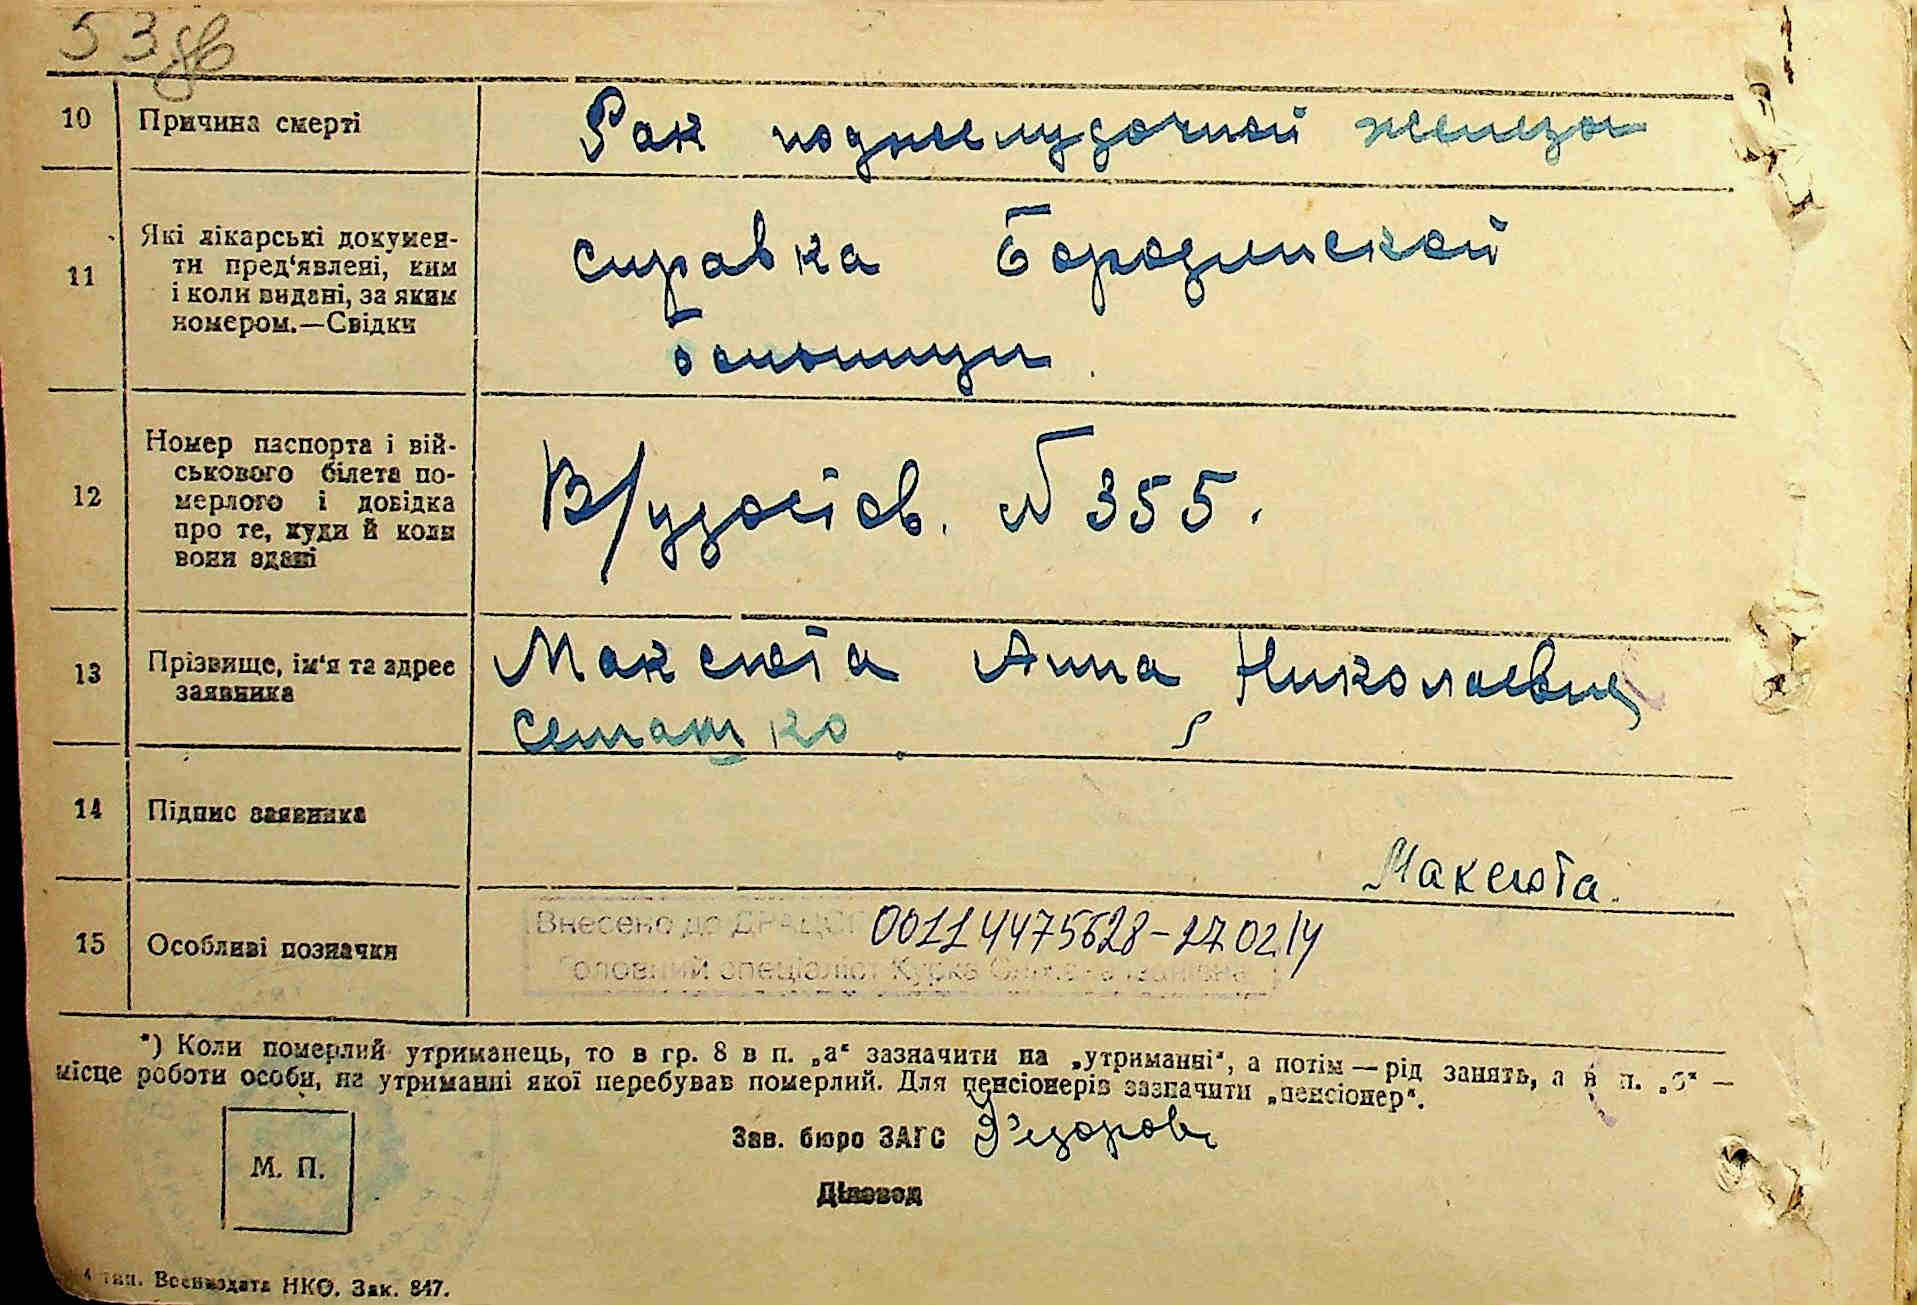 53
10 Причина смерті Рак поджелудочной железы
11 Які лікарські докумен-
ти пред'явлені, ким
і коли видані, за яким
номером.—Свідки
справка Бородинской
больницы
12 Номер паспорта і вій-
ськового білета по-
мерлого і довідка
про те, куди й коли
вони здані
В/удостов. № 355.
13 Прізвище, ім'я та адрес
заявника
Максюта Анна Николаевна
14 Підпис заявника
Максюта.
15 Особливі позначки
Внесено до ДРАЦСГ 00114475628-27.02.14
Головний спеціаліст Курка
*) Коли померлий утриманець, то в гр. 8 в п. „а“ зазначити на „утриманні“, а потім — рід занять, а в п. „б“ —
місце роботи особи, на утриманні якої перебував померлий. Для пенсіонерів зазначити „пенсіонер“.
Зав. бюро ЗАГС
М. П.
Діловод
тип. Воениздата НКО. Зак. 847.